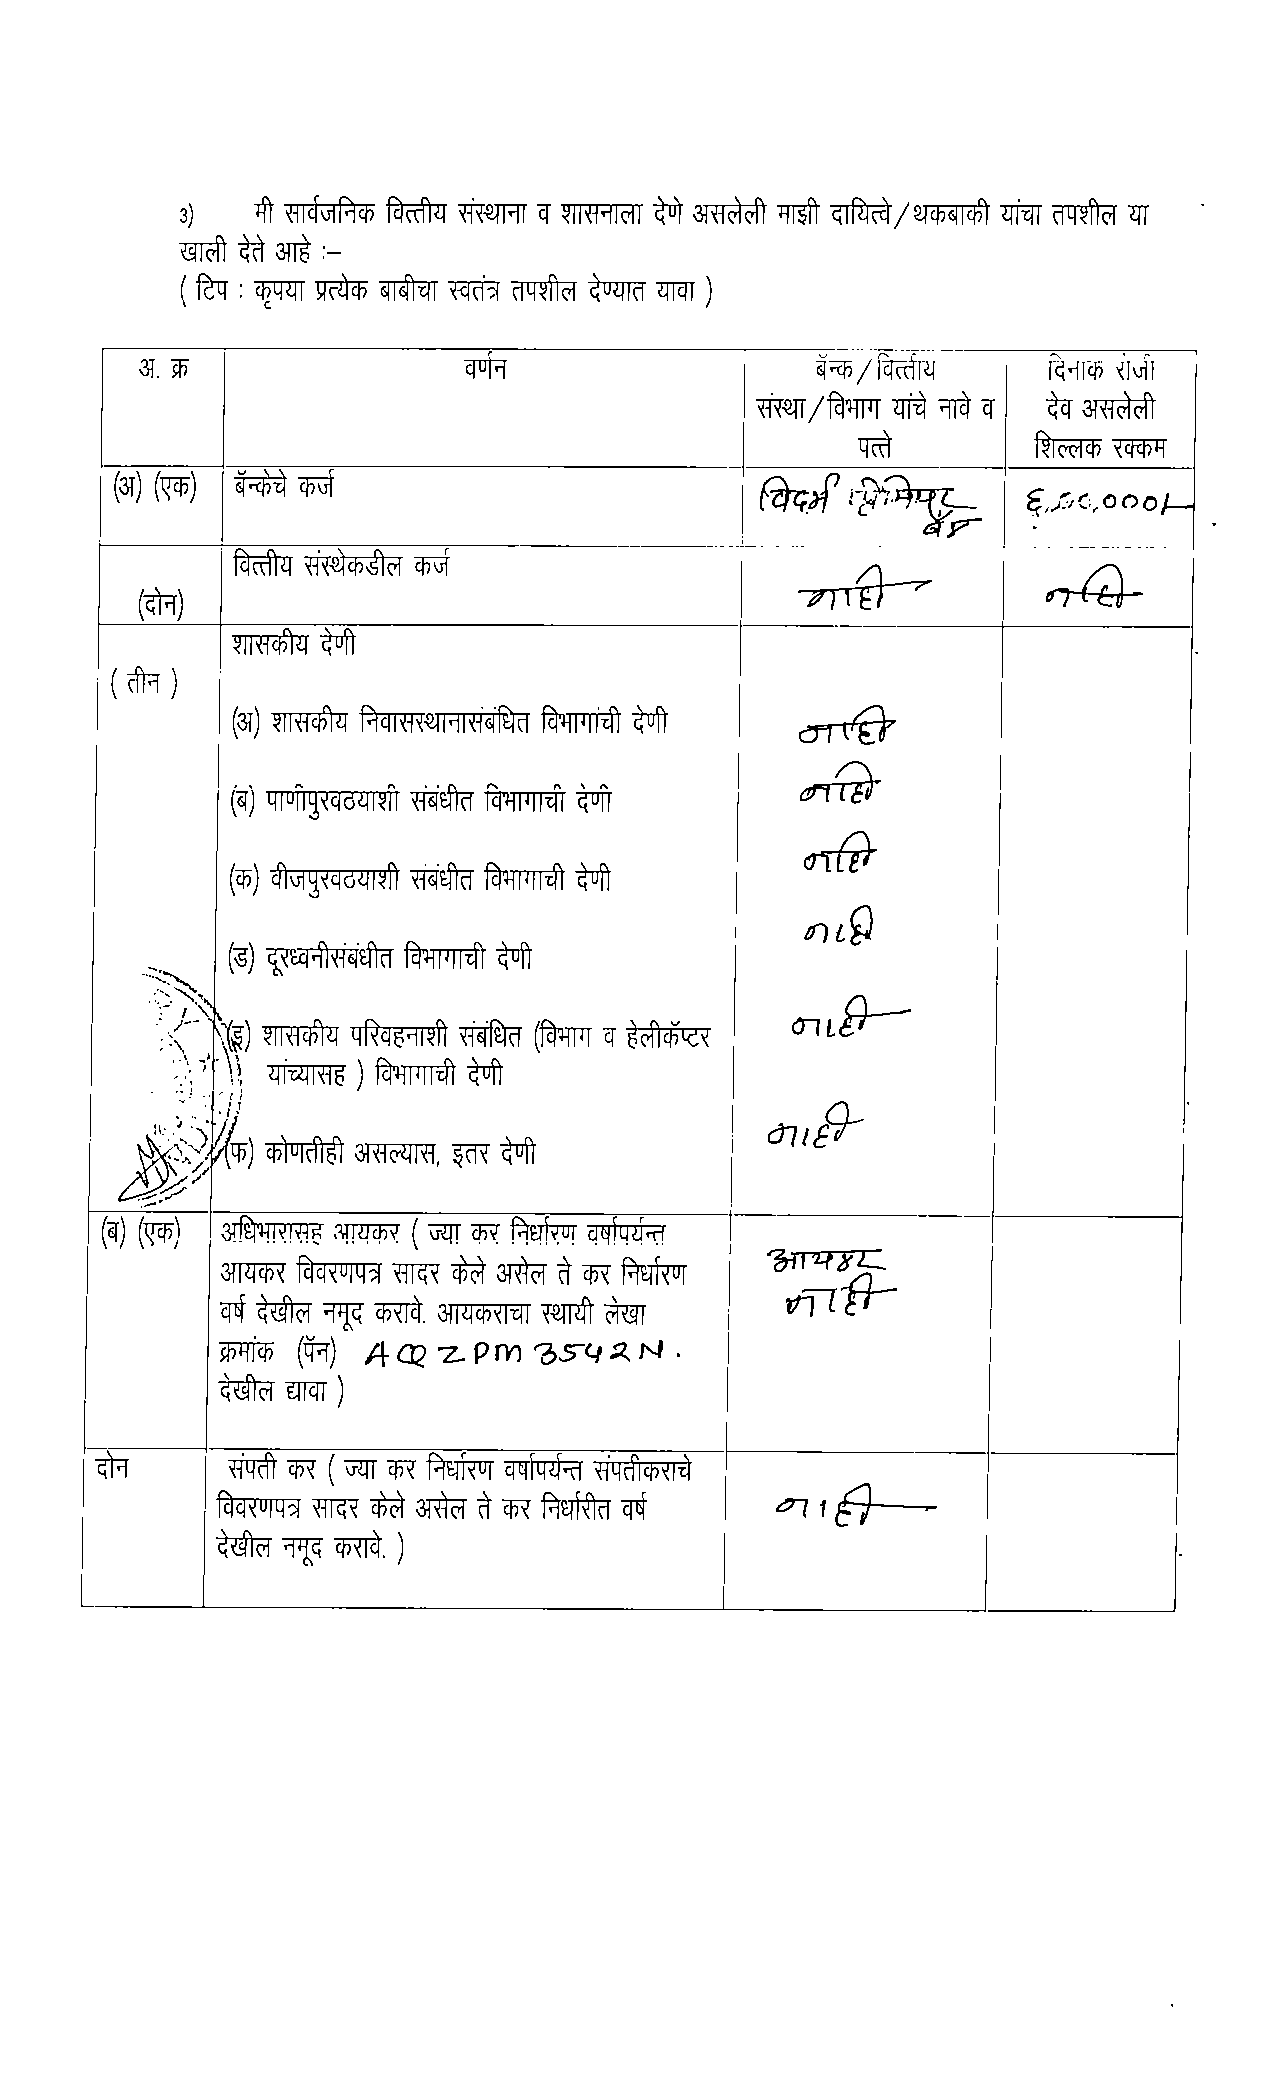 3) मी सार्वजनिक वित्तीय संस्थाना व शासनाला देणे असलेली माझी दायित्वे/थकबाकी यांचा तपशील या
खाली देते आहे :–
( टिप : कृपया प्रत्येक बाबीचा स्वतंत्र तपशील देण्यात यावा )
अ. क्र वर्णन बॅन्क/वित्तीय दिनाक रोजी
संस्था/विभाग यांचे नावे व देव असलेली
पत्ते शिल्लक रक्कम
(अ) (एक) बॅन्केचे कर्ज विदर्भ ६,००,०००/-
वित्तीय संस्थेकडील कर्ज
(दोन) नाही नाही
शासकीय देणी
( तीन )
(अ) शासकीय निवासस्थानासंबंधित विभागांची देणी नाही
(ब) पाणीपुरवठयाशी संबंधीत विभागाची देणी नाही
(क) वीजपुरवठयाशी संबंधीत विभागाची देणी नाही
(ड) दूरध्वनीसंबंधीत विभागाची देणी नाही
(इ) शासकीय परिवहनाशी संबंधित (विभाग व हेलीकॅप्टर नाही
यांच्यासह ) विभागाची देणी
(फ) कोणतीही असल्यास, इतर देणी नाही
(ब) (एक) अधिभारासह आयकर ( ज्या कर निर्धारण वर्षापर्यन्त
आयकर विवरणपत्र सादर केले असेल ते कर निर्धारण आयकर
वर्ष देखील नमूद करावे. आयकराचा स्थायी लेखा नाही
क्रमांक (पॅन) ACQZPM3542N.
देखील द्यावा )
दोन संपती कर ( ज्या कर निर्धारण वर्षापर्यन्त संपतीकराचे
विवरणपत्र सादर केले असेल ते कर निर्धारीत वर्ष नाही
देखील नमूद करावे. )